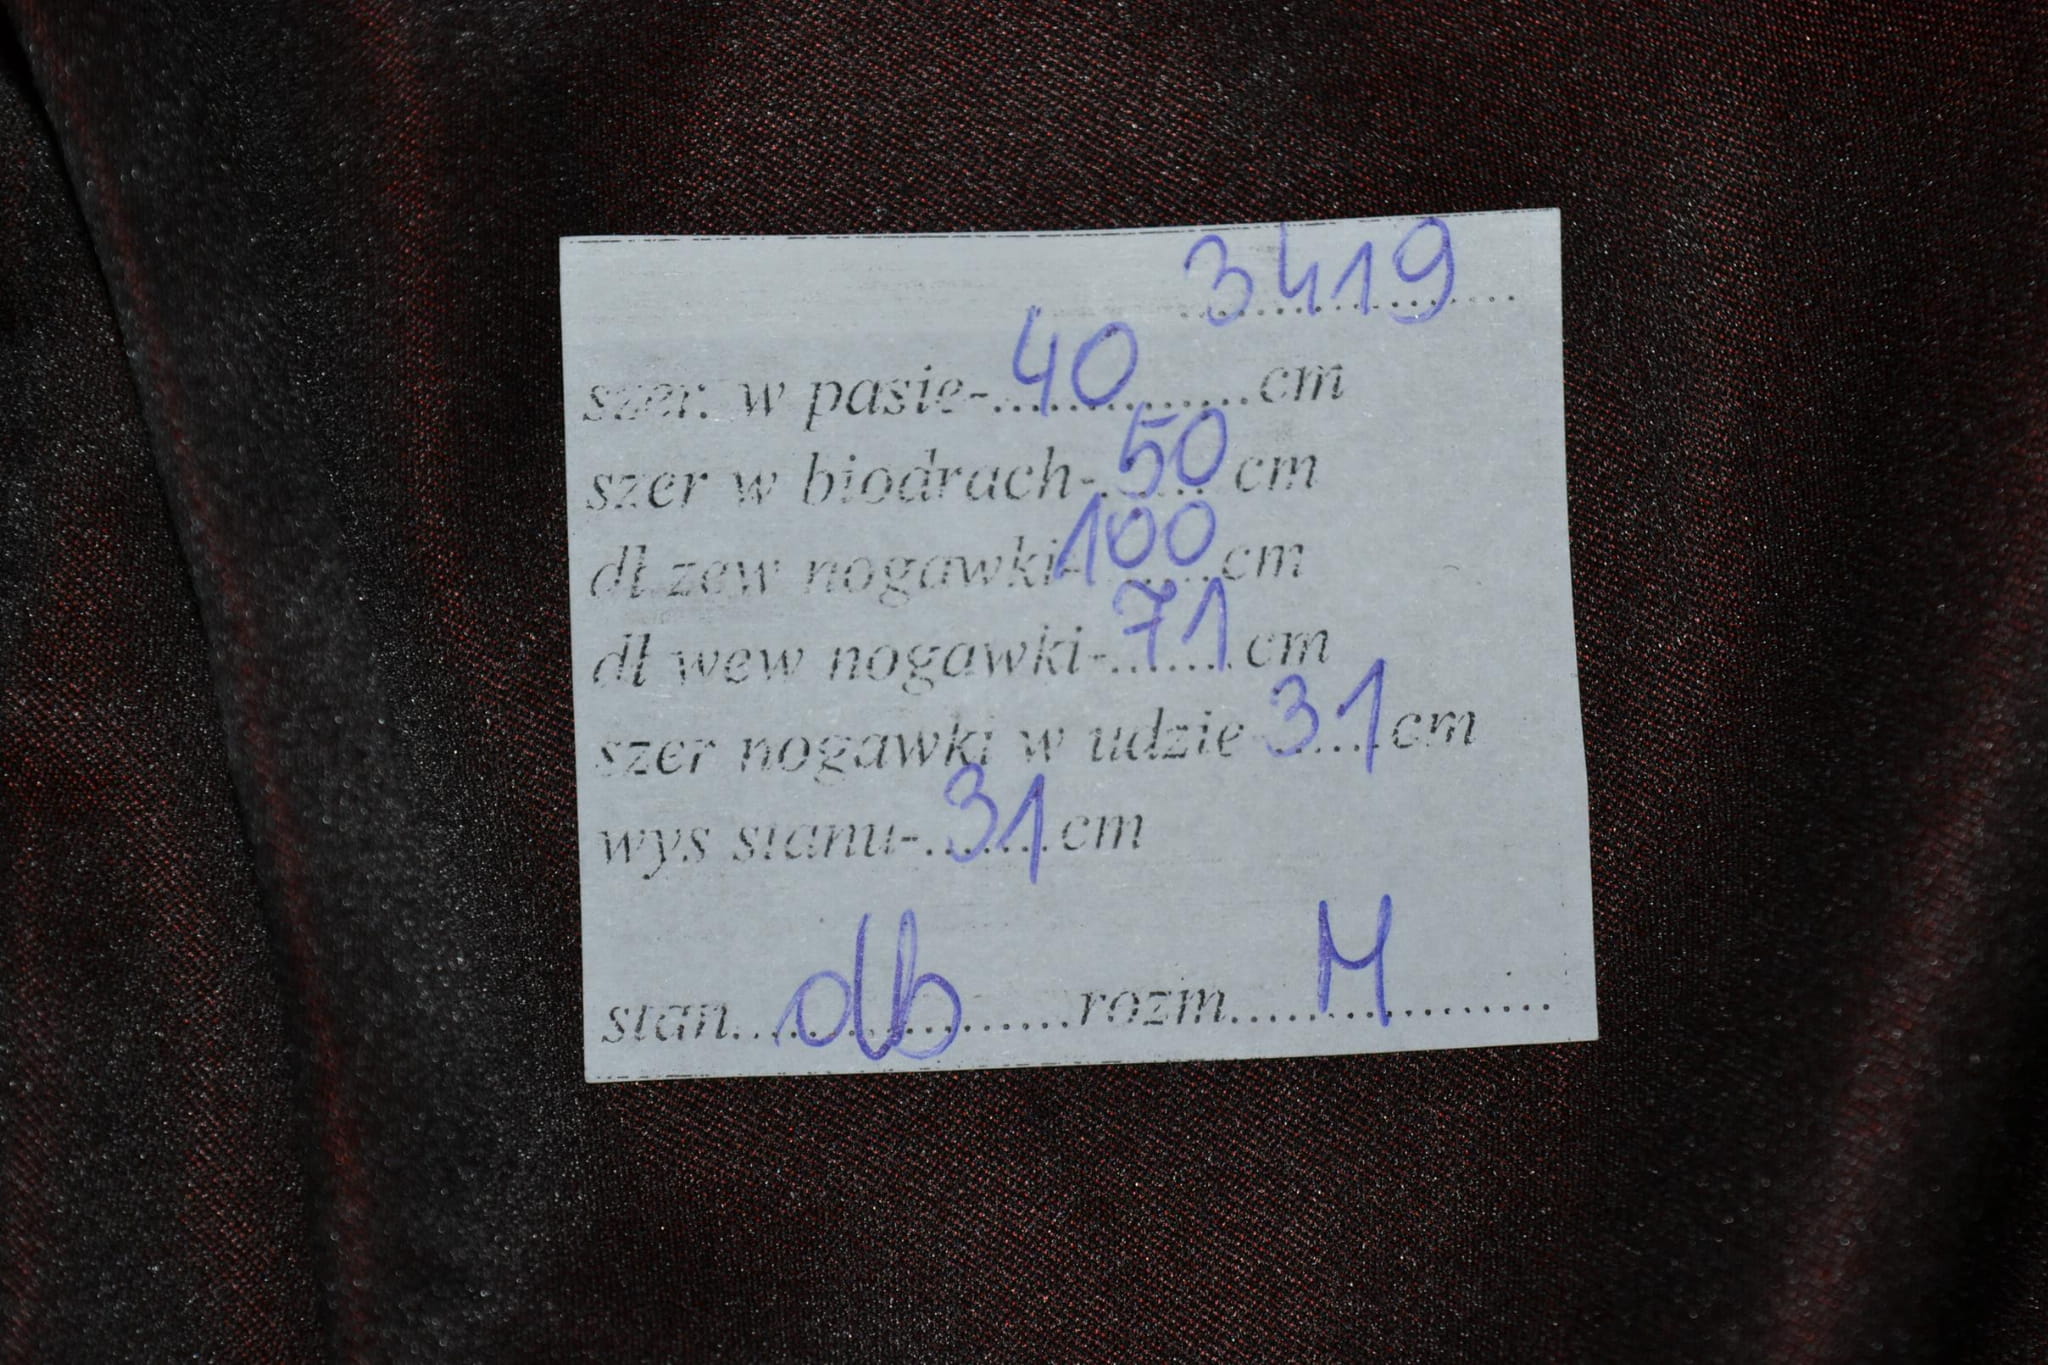 3419
szer. w pasie-40..............cm
szer w biodrach-50......cm
dł zew nogawki-100.......cm
dł wew nogawki-71.......cm
szer nogawki w udzie 31.....cm
wys stanu-31.......cm
stan....db.................rozm....M.................